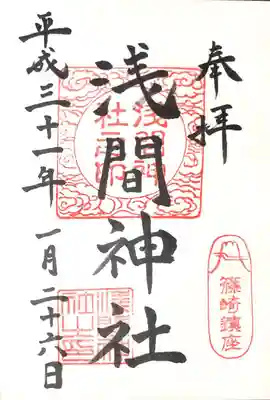 奉拝
浅間神社
平成三十一年 一月二十六日
浅間神
社之印
篠崎鎮座